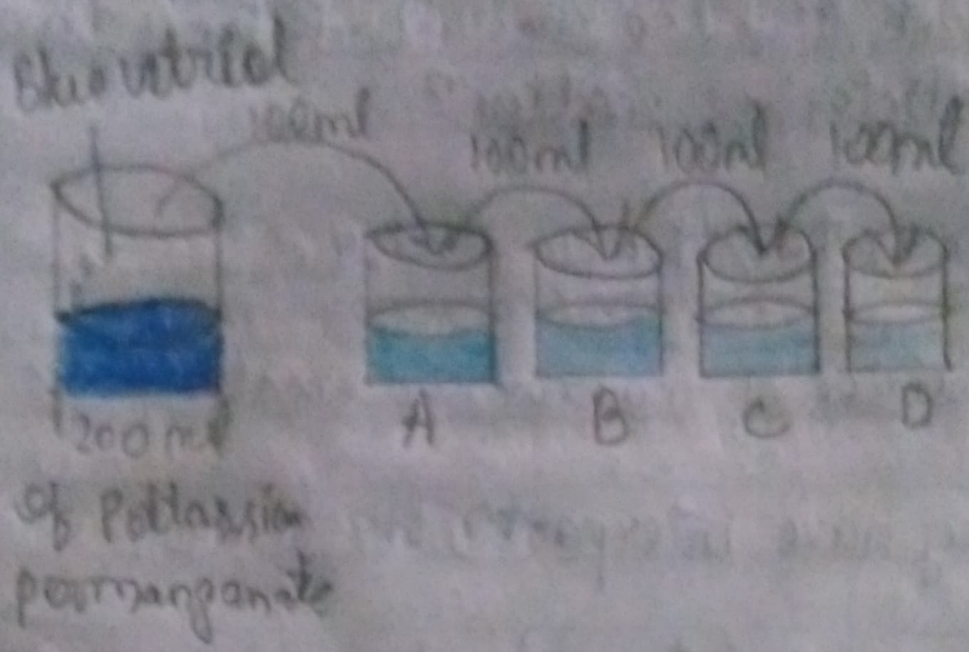 Blue vitriol
100ml 100ml 100ml 100ml
A B C D
200 ml
of Pottassium
permanganate